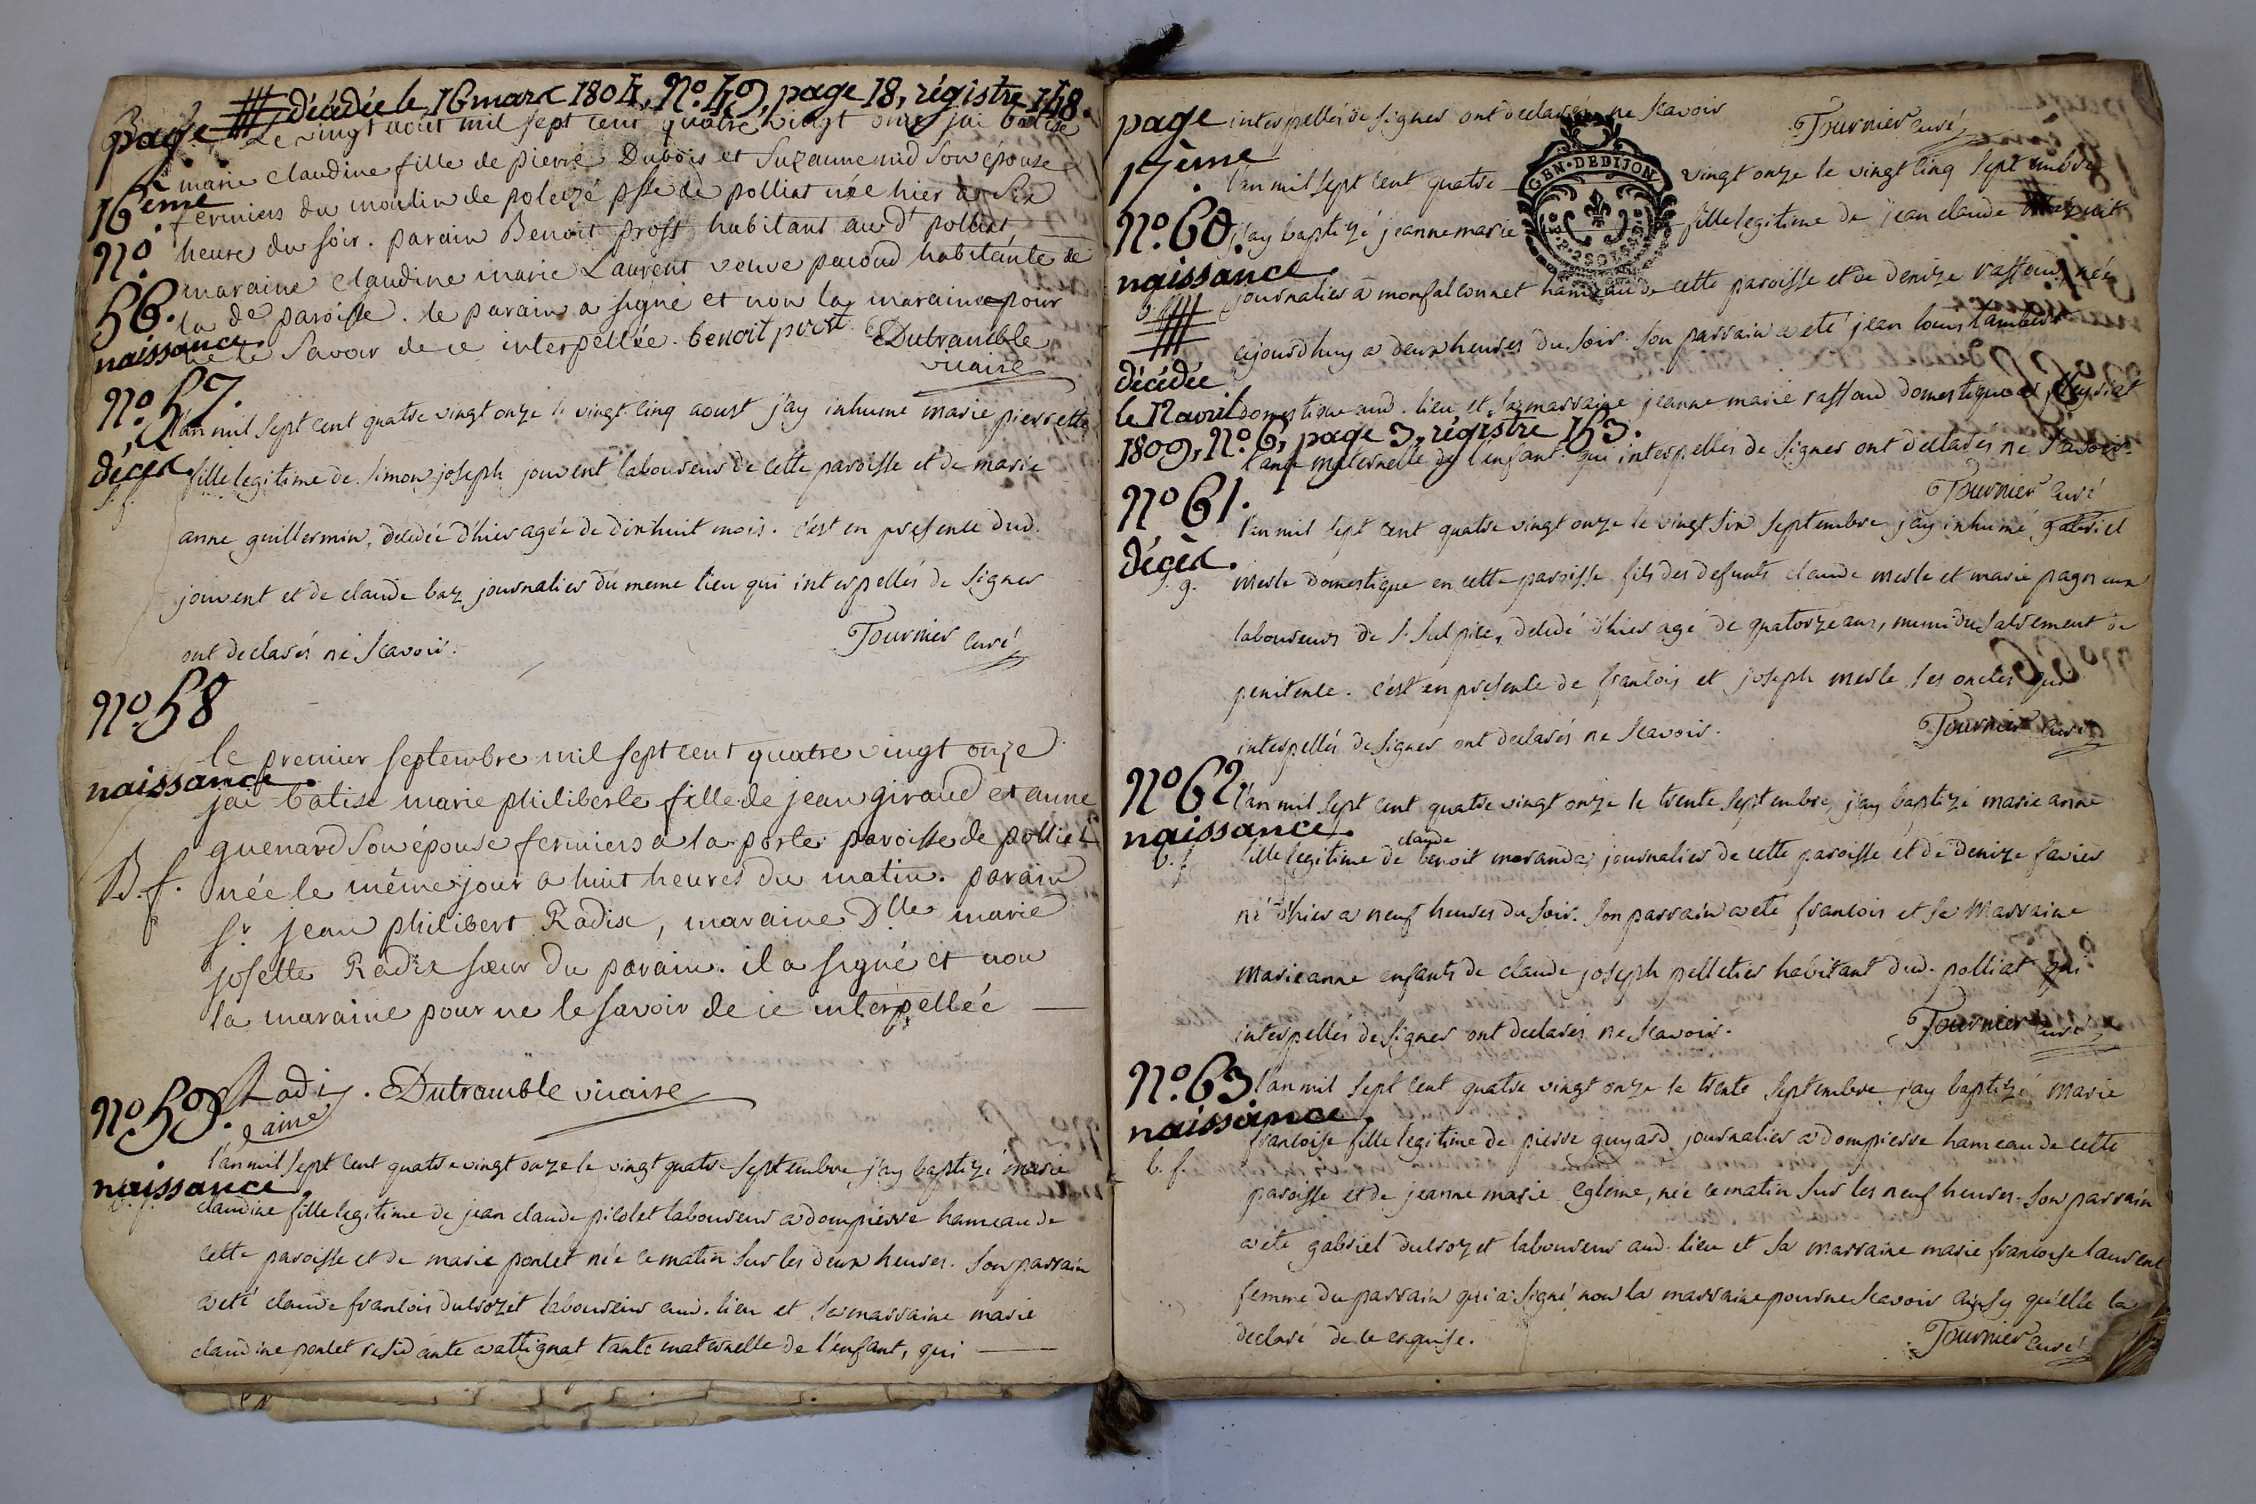 page décédée le 16 marx 1804, No. 49, page 18, régistre 148.
16ème
Le vingt aout mil sept cent quatre vingt onze jai batisé
marie claudine fille de pierre Dubois et Suzanne nid son épouse
fermiers du moulin de polezé psse de polliat née hier a six
No. 56. naissance.
heure du soir. parain Benoit prost habitant aud. polliat
maraine claudine marie Laurent veuve pacoud habitante de
la de paroisse. le parain a signé et non la maraine pour
ne le savoir de ce interpellée. benoit prost Dutramble
vicaire
No. 57.
l'an mil sept cent quatre vingt onze le vingt cinq aoust j'ay inhumé marie pierrette
décex. fille legitime de Simon joseph jouvent laboureur de cette paroisse et de marie
s. f.
anne guillermin, decedée d'hier agée de dix huit mois. c'est en presence dud.
jouvent et de claude baz journalier du meme lieu qui interpellés de signer
ont declarés ne scavoir. Tournier curé
No. 58
le premier septembre mil sept cent quatre vingt onze
naissance.
jai batisé marie philiberte fille de jean giraud et anne
guenard son épouse fermiers a la porte paroisse de polliat
B. f. née le même jour a huit heures du matin. parain
Sr jean philibert Radix, maraine Dlle marie
josette Radix sœur du parain. il a signé et non
la maraine pour ne le savoir de ce interpellée
Radix. Dutramble vicaire
l'ainé
No. 59.
l'an mil sept cent quatre vingt onze le vingt quatre septembre j'ay baptizé marie
naissance.
b. f.
claudine fille legitime de jean claude pilolet laboureur a dompierre hameau de
cette paroisse et de marie ponlet née ce matin sur les deux heures. son parrain
a eté claude francois dulrozet laboureur aud. lieu et sa marraine marie
claudine ponlet residante a attignat tante maternelle de l'enfant, qui
page 17ème
interpellés de signer ont declarés ne scavoir Tournier curé
GEN. DE DIJON
No. 60.
naissance.
l'an mil sept cent quatre vingt onze le vingt cinq septembre
j'ay baptizé jeanne marie fille legitime de jean claude
b. f.
journalier a monfalconnet hameau de cette paroisse et de denize raffoux, née
cejourd'huy a deux heures du soir. son parrain a eté jean louis lambert
décédée
le 12 avril domestique aud. lieu et sa marraine jeanne marie raffoud domestique a
1809, No. 6, page 3, régistre 153.
tante maternelle de l'enfant qui interpellés de signer ont declarés ne scavoir
Tournier curé
No. 61.
l'an mil sept cent quatre vingt onze le vingt six septembre j'ay inhumé gabriel
décex.
s. g. merle domestique en cette paroisse fils des defunts claude merle et marie pagneux
laboureurs de St. Sulpice, decedé d'hier agé de quatorze ans, muni du sacrement de
penitence. c'est en presence de francois et joseph merle ses oncles qui
interpellés de signer ont declarés ne scavoir. Tournier curé
No. 62.
l'an mil sept cent quatre vingt onze le trente septembre j'ay baptizé marie anne
naissance.
claude
b. f. fille legitime de benoit morandas journalier de cette paroisse et de denize favier
né d'hier a neuf heures du soir. son parrain a eté francois et sa marraine
marie anne enfants de claude joseph pelletier habitant dud. polliat qui
interpellés de signer ont declarés ne scavoir. Tournier curé
No. 63
l'an mil sept cent quatre vingt onze le trente septembre j'ay baptizé marie
naissance.
francoise fille legitime de pierre guyard journalier a dompierre hameau de cette
b. f.
paroisse et de jeanne marie egleme, née ce matin sur les neuf heures. son parrain
a eté gabriel dulrozet laboureur aud. lieu et sa marraine marie francoise laurent
femme du parrain qui a signé non la marraine pour ne scavoir ainsy qu'elle la
declaré de ce enquise. Tournier curé